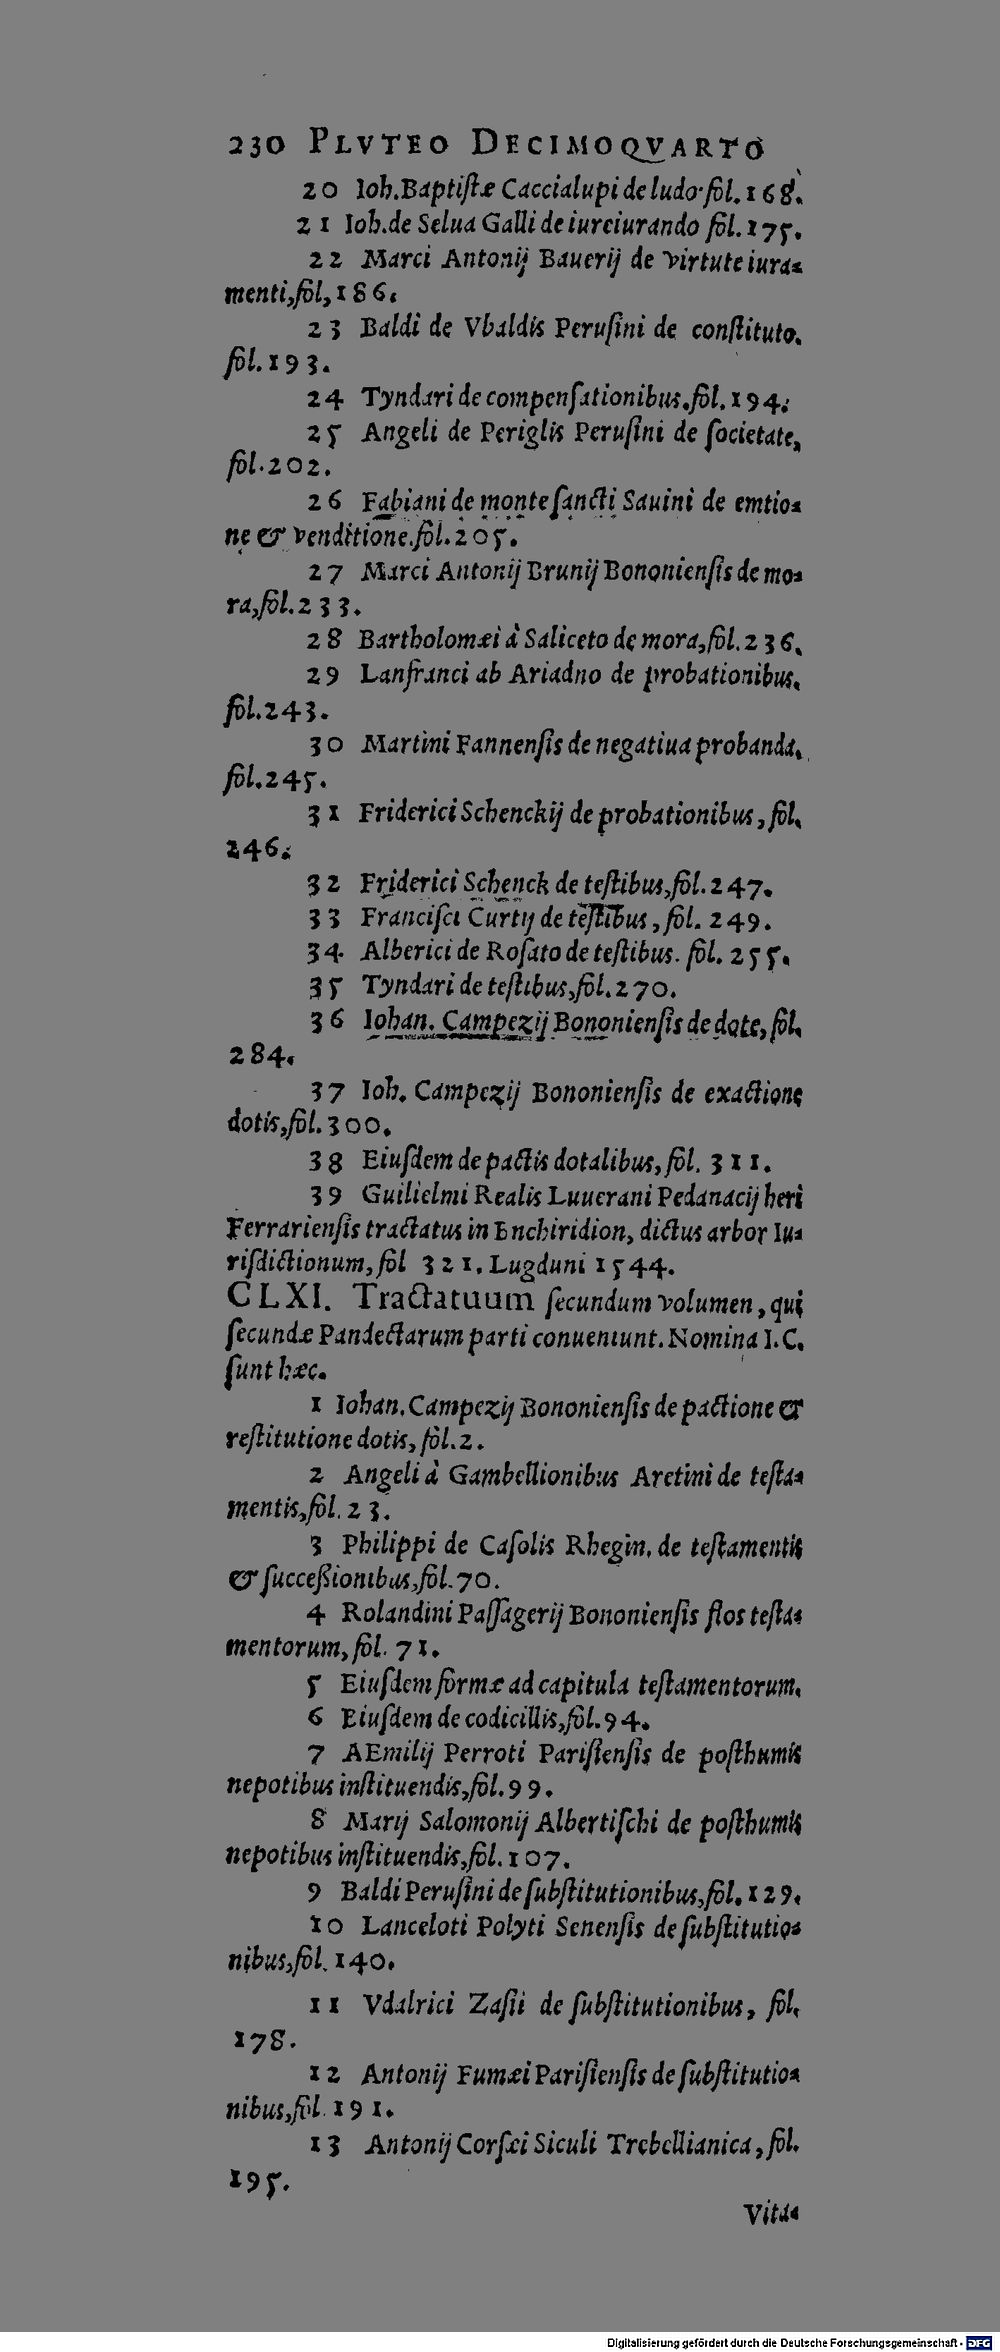 230 PLVTEO DECIMOQVARTO
20 Ioh.Baptiſtæ Caccialupi de ludo fol.168.
21 Ioh.de Selua Galli de iureiurando fol.175.
22 Marci Antonij Bauerij de virtute iura-
menti,fol,186.
23 Baldi de Vbaldis Peruſini de conſtituto.
fol.193.
24 Tyndari de compenſationibus.fol.194.
25 Angeli de Periglis Peruſini de ſocietate,
fol.202.
26 Fabiani de monte ſancti Sauini de emtio-
ne & venditione.fol.205.
27 Marci Antonij Brunij Bononienſis de mo-
ra,fol.233.
28 Bartholomæi à Saliceto de mora,fol.236.
29 Lanfranci ab Ariadno de probationibus.
fol.243.
30 Martini Fannenſis de negatiua probanda.
fol.245.
31 Friderici Schenckij de probationibus, fol.
246.
32 Friderici Schenck de teſtibus,fol.247.
33 Franciſci Curtij de teſtibus, fol. 249.
34 Alberici de Roſato de teſtibus. fol. 255.
35 Tyndari de teſtibus,fol.270.
36 Iohan. Campezij Bononienſis de dote, fol.
284.
37 Ioh. Campezij Bononienſis de exactione
dotis,fol.300.
38 Eiuſdem de pactis dotalibus, fol. 311.
39 Guilielmi Realis Luuerani Pedanacij heri
Ferrarienſis tractatus in Enchiridion, dictus arbor Iu-
riſdictionum, fol 321. Lugduni 1544.
CLXI. Tractatuum ſecundum volumen, qui
ſecundæ Pandectarum parti conueniunt. Nomina I.C.
ſunt hæc.
1 Iohan.Campezij Bononienſis de pactione &
reſtitutione dotis, fol.2.
2 Angeli à Gambellionibus Aretini de teſta-
mentis,fol. 23.
3 Philippi de Caſolis Rhegin. de teſtamentis
& ſucceßionibus,fol.70.
4 Rolandini Paſſagerij Bononienſis flos teſta-
mentorum, fol. 71.
5 Eiuſdem formæ ad capitula teſtamentorum.
6 Eiuſdem de codicillis,fol.94.
7 AEmilij Perroti Pariſienſis de poſthumis
nepotibus inſtituendis,fol.99.
8 Marij Salomonij Albertiſchi de poſthumis
nepotibus inſtituendis,fol.107.
9 Baldi Peruſini de ſubſtitutionibus,fol.129.
10 Lanceloti Polyti Senenſis de ſubſtitutio-
nibus,fol.140.
11 Vdalrici Zaſii de ſubſtitutionibus, fol.
178.
12 Antonij Fumæi Pariſienſis de ſubſtitutio-
nibus,fol.191.
13 Antonij Corſæi Siculi Trebellianica, fol.
195.
Vita-
Digitalisierung gefördert durch die Deutsche Forschungsgemeinschaft - DFG